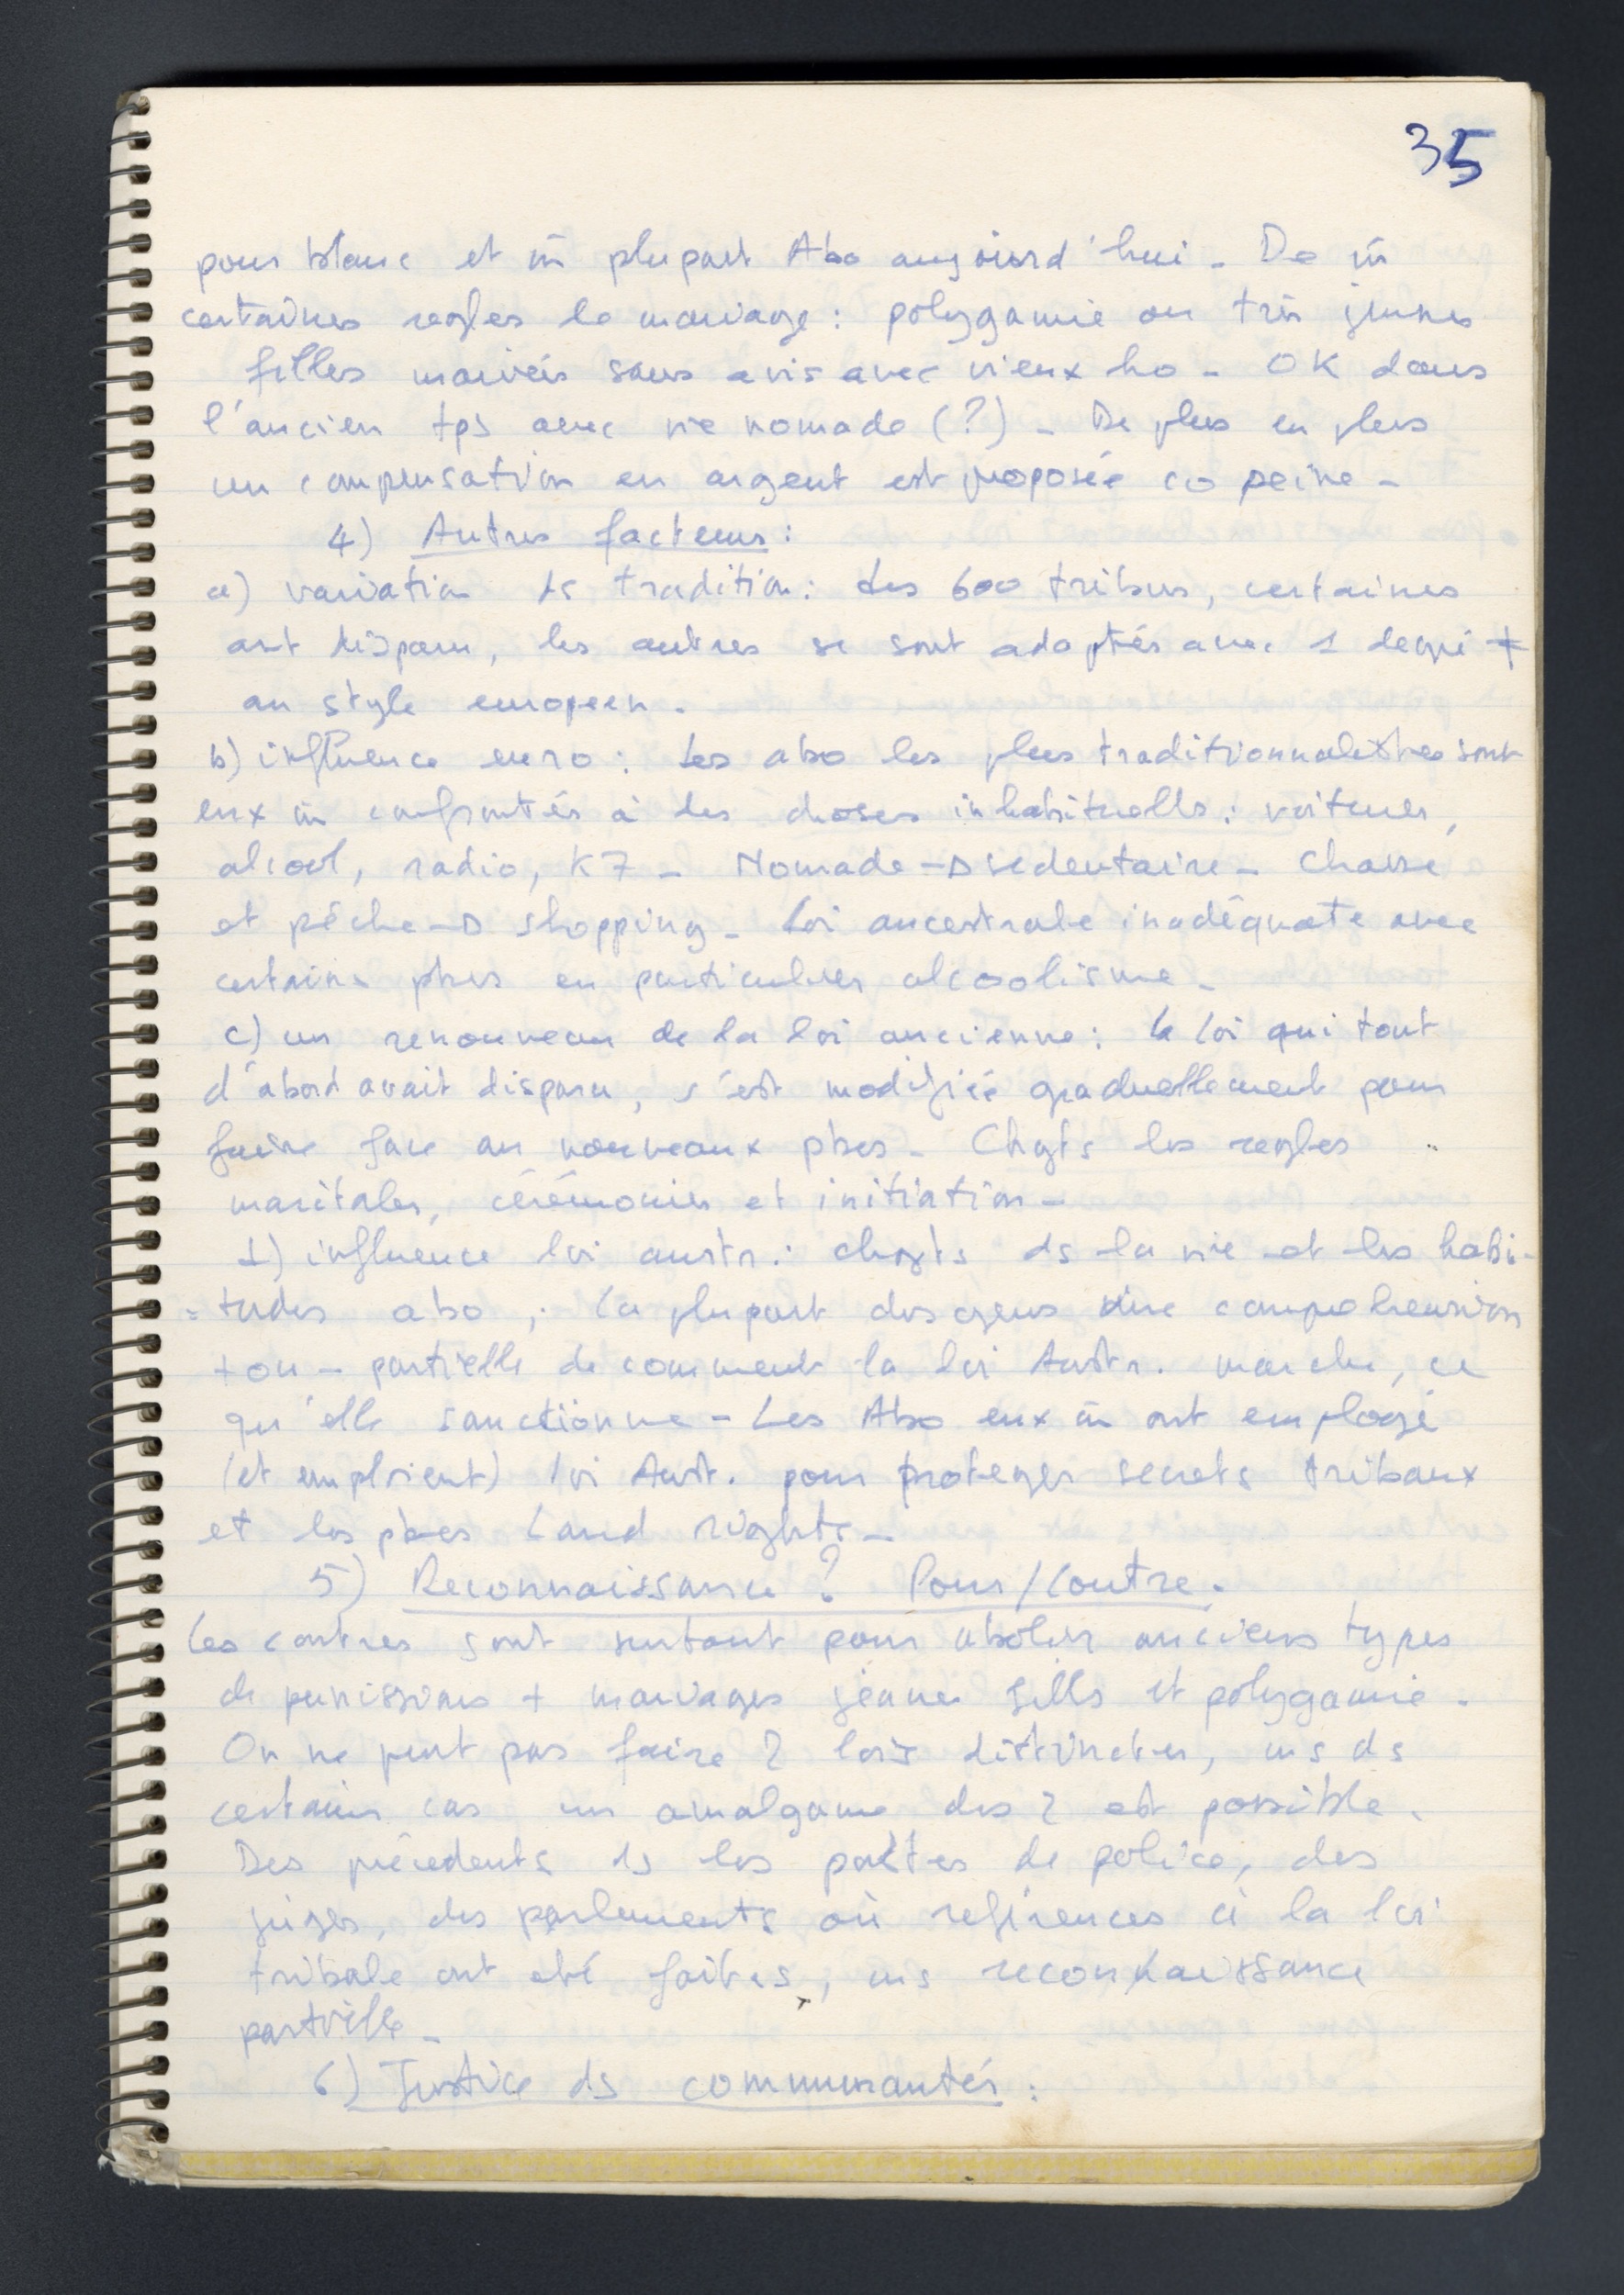 35
pour blanc et m̄ plupart Abo aujourd'hui - De m̄
certaines regles le mariage : polygamie ou très jeunes
filles mariées sans avis avec vieux ho - OK dans
l'ancien tps avec vie nomade (?) - De plus en plus
un compensation en argent est proposée co peine -
4) Autres facteurs :
a) variation ds tradition : des 600 tribus, certaines
ont disparu, les autres se sont adaptés avec 1 degré ≠
au style europeen -
b) influence euro : Les abo les plus traditionnalistes sont
eux m̄ confrontés à des choses inhabituelles : voitures,
alcool, radio, K7 - Nomade → sedentaire - Chasse
et pêche → shopping - Loi ancestrale inadéquate avec
certains pbes en particulier alcoolisme -
c) un renouveau de la loi ancienne : la loi qui tout
d'abord avait disparu, s'est modifiée graduellement pour
faire face au nouveaux pbes - Chgts les regles
maritales, cérémonies et initiation -
d) influence loi austr. : chgts ds la vie et les habi-
-tudes abo ; la plupart des gens une comprehension
+ ou - partielle de comment la loi Austr. marche, ce
qu'elle sanctionne - Les Abo eux m̄ ont employé
(et emploient) loi Aust. pour proteger secrets tribaux
et les pbes Land rights -
5) Reconnaissance ? Pour/Contre.
Les contres sont surtout pour abolir anciens types
de punissions + mariages jeunes filles et polygamie -
On ne peut pas faire 2 lois distinctes, ms ds
certains cas un amalgame des 2 est possible.
Des précedents ds les postes de police, des
juges, des parlements où references à la loi
tribale ont été faites, ms reconnaissance
partielle -
6) Justice ds communautés :